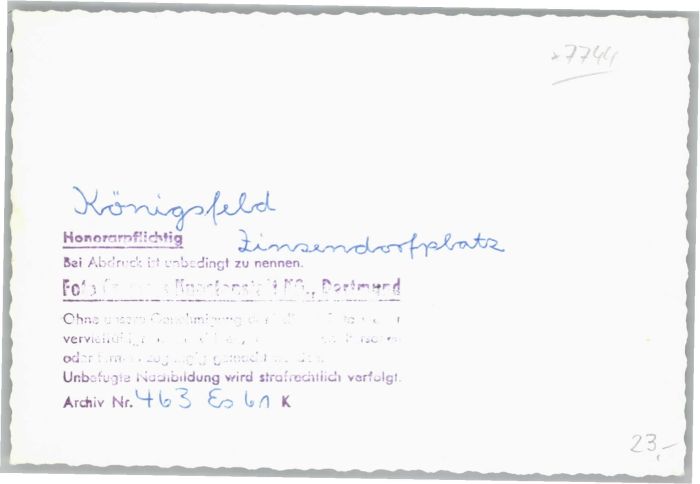 7744
Königsfeld
Honorarpflichtig
Zinzendorfplatz
Bei Abdruck ist unbedingt zu nennen.
Foto Kunstanstalt KG., Dortmund
Ohne unsere Genehmigung
oder
Unbefugte Nachbildung wird strafrechtlich verfolgt.
Archiv Nr. 463 Es 61 K
23,-